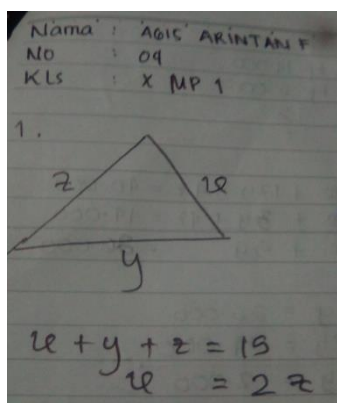 Nama : AGIS ARINTAN F
No : 09
Kls : X MP 1
1.
z x
y
x + y + z = 19
x = 2 z